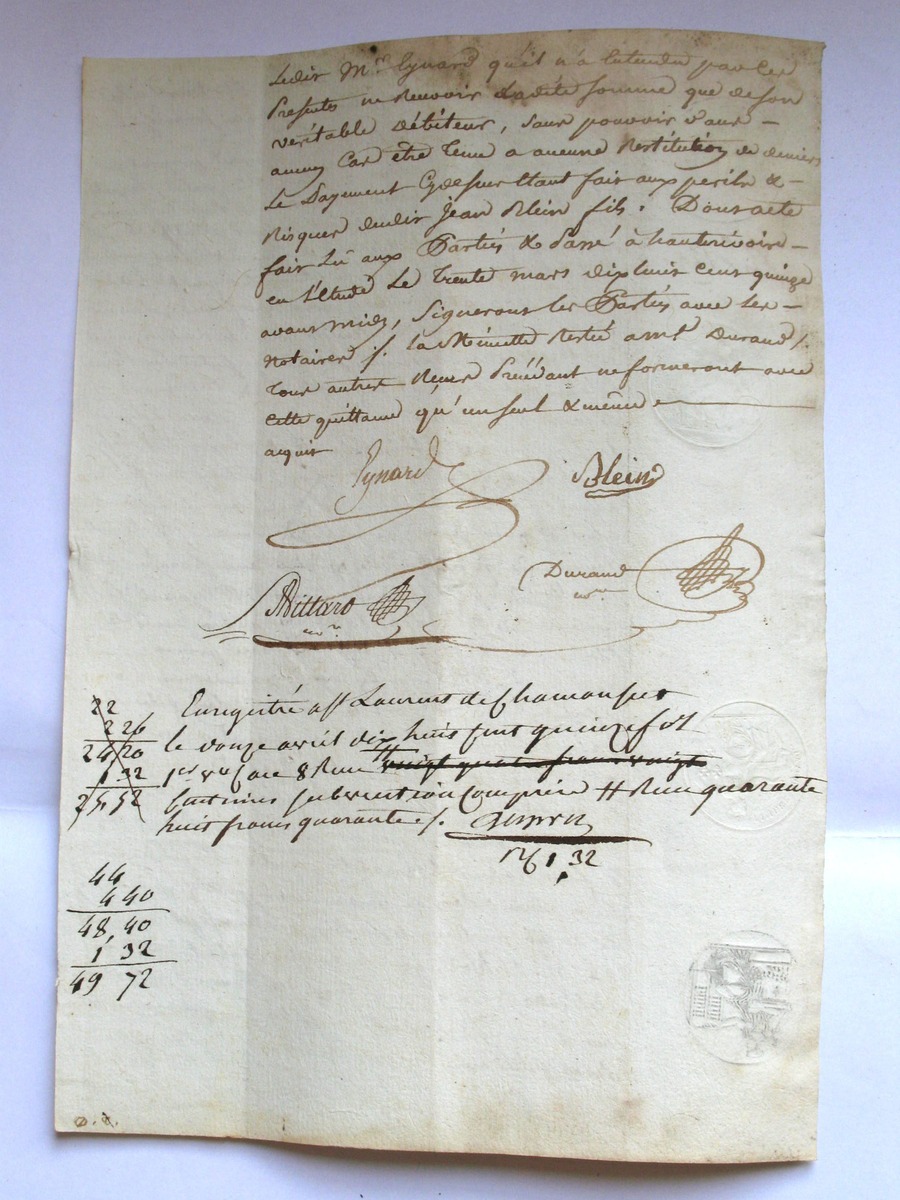 Ledit Mr. Eynard qu'il n'a Entendu par Ces
presentes ne Recevoir Ladite somme que de son
véritable Débiteur, sans pouvoir d'aus-
aucun Cas être Tenu a aucune Restitution de deniers
Le Payement Cydessus Etant fait aux perils &
Risques dudit Jean Blein fils. Dont acte
fait Lu aux Parties & Passé à hauterivoire-
en L'Etude Le Trente mars dix huit Cent quinze
avant midy, Signeront les Parties avec les-
Notaires /. la Minutte Restée a mt. Durand /.
Tous autres Reçus Précédant ne formeront avec
Cette quittance qu'un seul & même
acquit
Eynard Blein
Durand
nre
Billard
nre
22
2 26
24 20
1 32
25 52
Enregistré a St Laurent de Chamousset
le douze avril dix huit cent quinze fol
1er Vo Case 8 Reçu vingt quatre francs vingt
Centimes subvention Comprise # Reçu quarante
huit francs quarante c/.
1,32
44
4 40
48,40
1 32
49 72